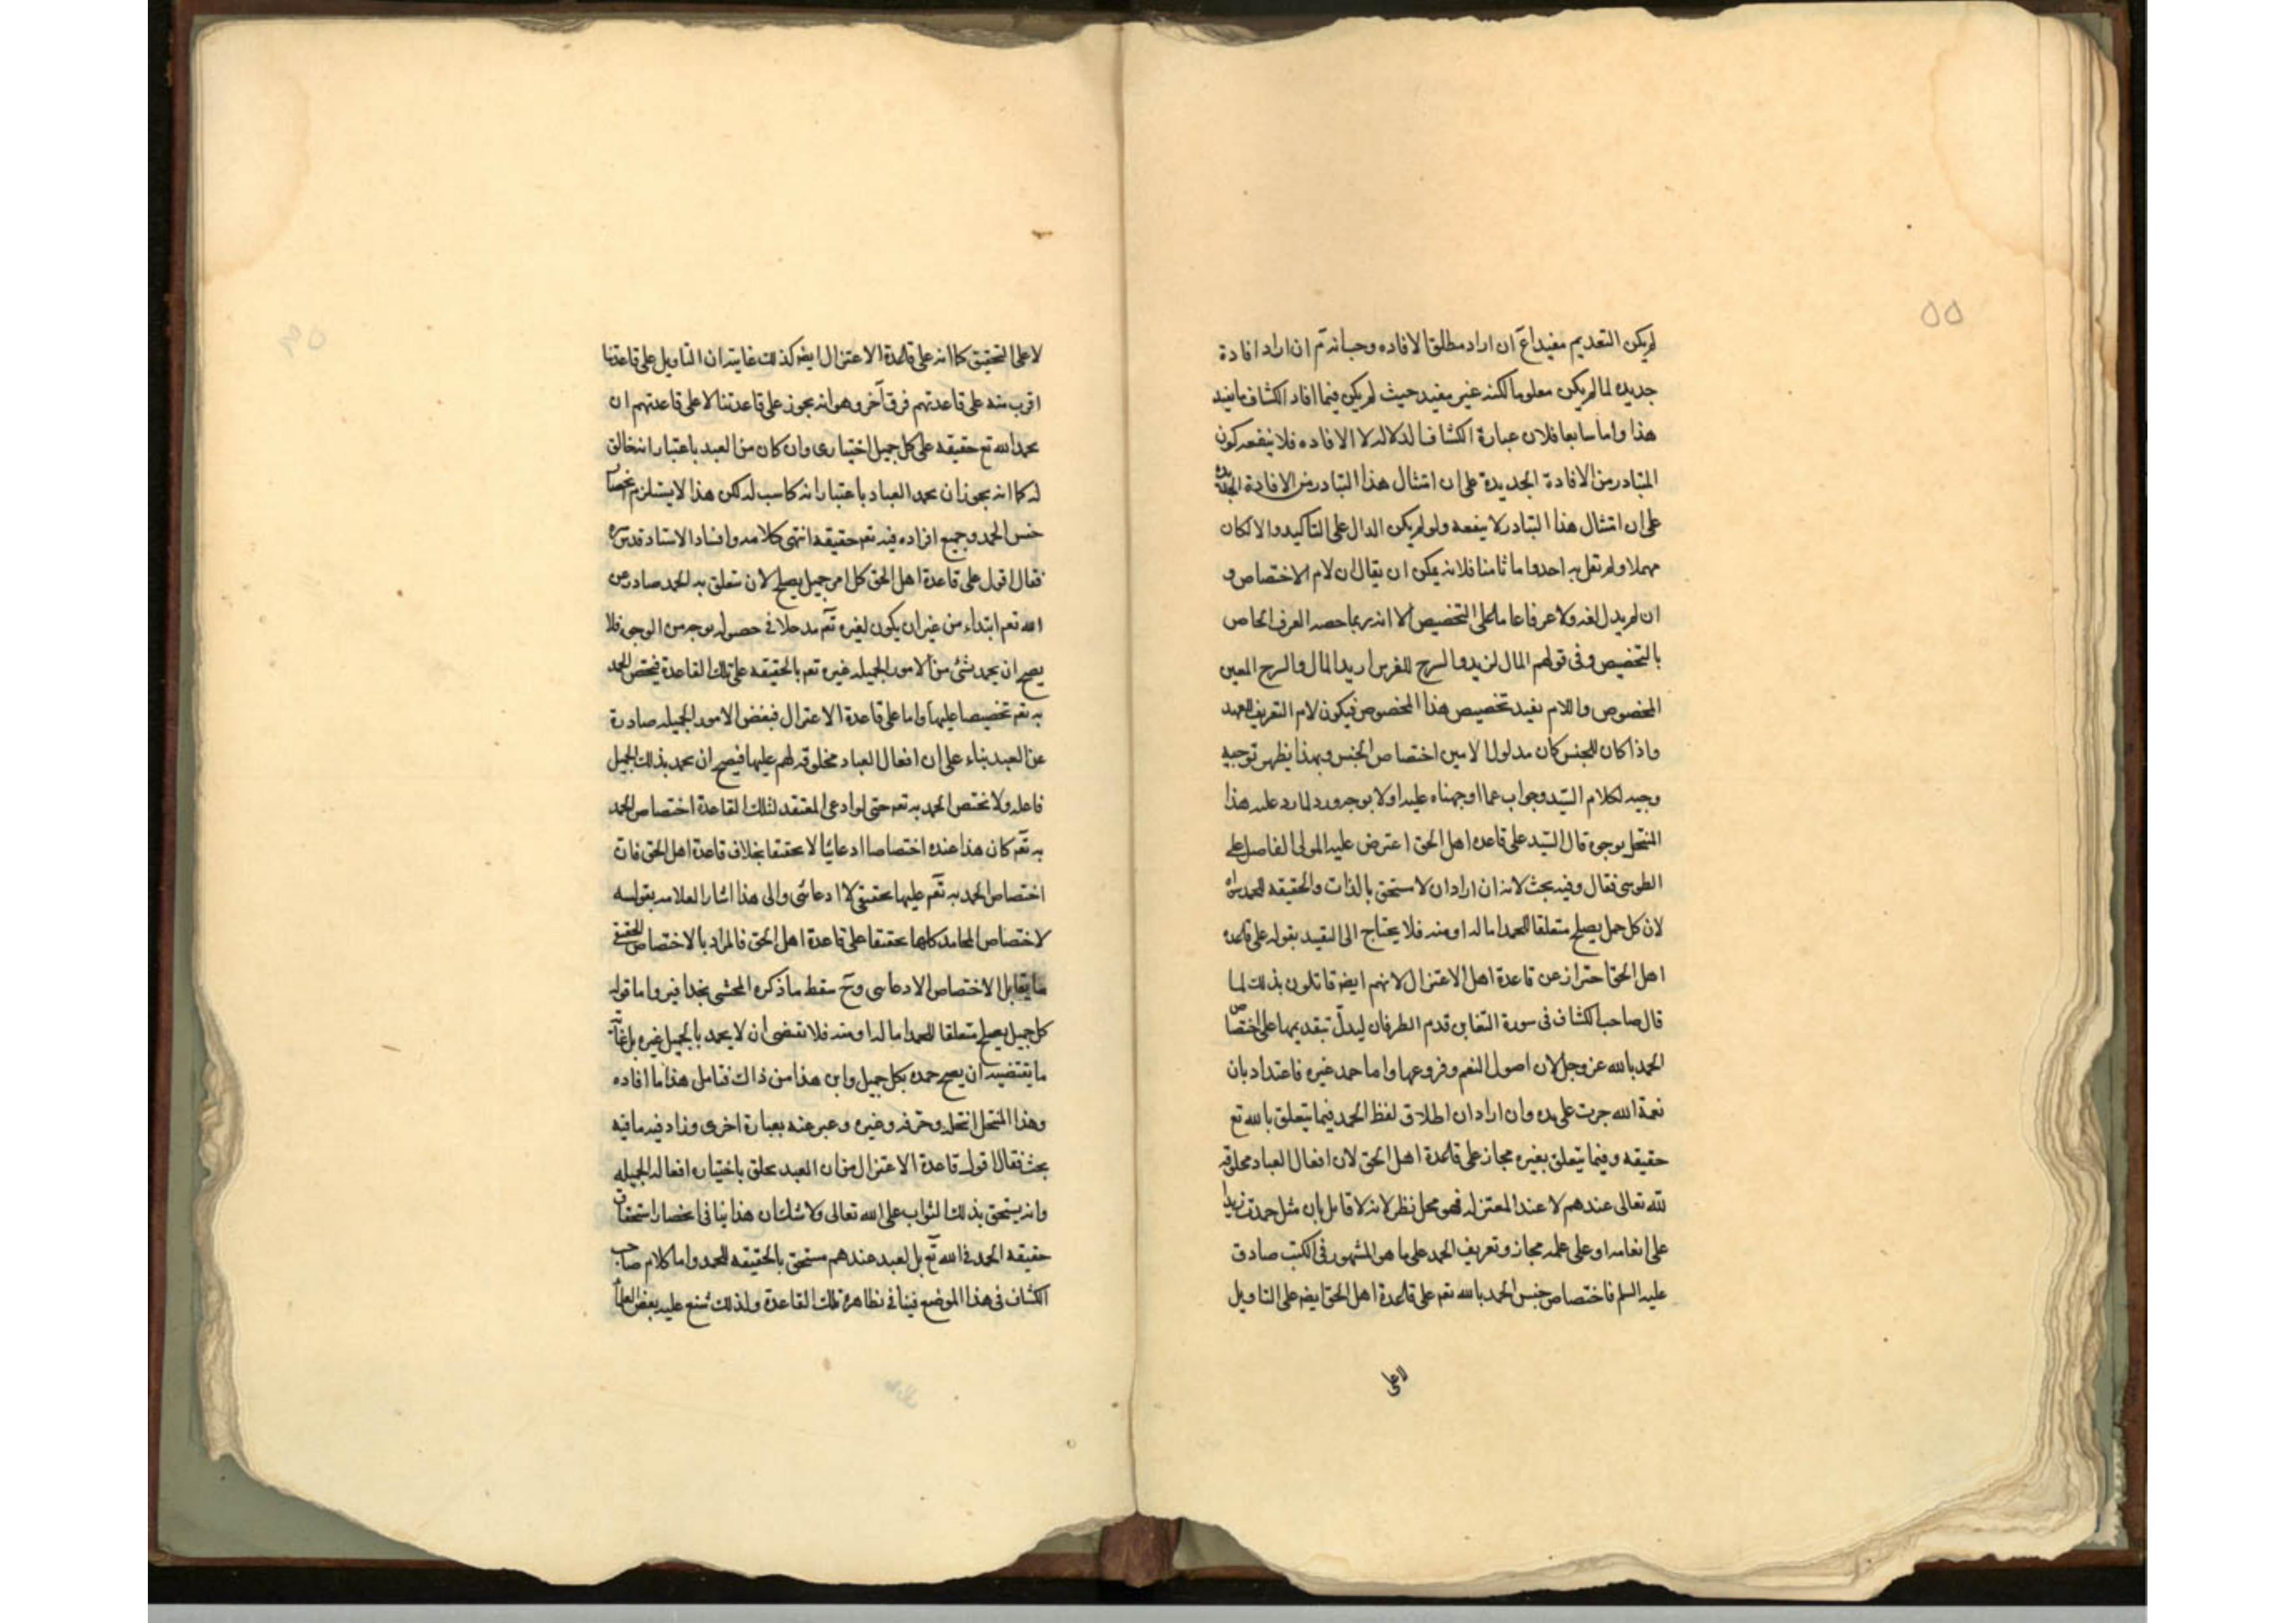 ٥٥
لم يكن التقديم مفيدا ان اراد مطلق الافاده وحسبانه تم ان اراد افادة
جديده لما لم يكن معلوما لكنه غير مفيد حيث لم يكن فيما افاد الكشاف ما يفيد
هذا واما سابعا فلان عبارة الكشاف الدلاله لا الافاده فلا ينفعه كون
المتبادر من الافادة الجديدة على ان امتثال هذا التبادر من الافادة الجديده
على ان امتثال هذا التبادر لا ينفعه ولو لم يكن الدال على التاكيد والا لكان
مهملا ولم تقل به احد واما ثامنا فلانه يمكن ان يقال ان لام الاختصاص و
ان لم يدل لغه ولا عرفا عاما على التخصيص الا انه ربما خصه العرف الخاص
بالتخصيص وفى قولهم المال لزيد والسرج للفرس اريد المال والسرج المعين
المخصوص واللام يفيد تخصيص هذا المخصوص فيكون لام التعريف للعهد
واذا كان للجنس كان مدلول الامين اختصاص الجنس وبهذا يظهر توجيه
وجيه لكلام السيد وجواب عما اوجهناه عليه اولا بوجه ورد لما رد عليه هذا
المنتحل بوجوه قال السيد على قاعده اهل الحق اعترض عليه المولى الفاضل على
الطوسى فقال وفيه بحث لانه ان اراد ان لا مستحق بالذات والحقيقه للحمد سواه
لان كل جميل يصلح متعلقا للحمد اما له او منه فلا يحتاج الى التقيد بقوله على قاعده
اهل الحق احتراز عن قاعدة اهل الاعتزال لانهم ايضه قائلون بذلك لما
قال صاحب الكشاف فى سورة التغابن قدم الظرفان ليدل تبقديمها على اختصاص
الحمد بالله عز وجل لان اصول النعم وفروعها واما حمد غيره فاعتداد بان
نعمة الله جرت على يده وان اراد ان اطلاق لفظ الحمد فيما يتعلق بالله تع
حقيقه وفيما يتعلق بغيره مجاز على قاعدة اهل الحق لان افعال العباد مخلوقه
لله تعالى عندهم لا عند المعتزله فهو محل نظر لانه لا قايل بان مثل حمدت زيدا
على انعامه او على علمه مجاز وتعريف الحمد على ما هو المشهور فى الكتب صادق
عليه السلم فاختصاص جنس الحمد بالله تعم على قاعدة اهل الحق ايضه على التاويل
لاعلى
لا على التحقيق كما انه على قاعدة الاعتزال ايضه كذلك غايته ان التاويل على قاعدتنا
اقرب منه على قاعدتهم فرق آخر وهو انه يجوز على قاعدتنا لا على قاعدتهم ان
يحمد الله تع حقيقه على كل جميل اختيارى وان كان من العبد باعتبار انه خالق
له كما انه يجوز ان يحمد العباد باعتبار انه كاسب له لكن هذا لا يستلزم
جنس الحمد وجميع افراده فيه تعم حقيقه انتهى كلامه وافساد الاستاد قدس سره
فقال اقول على قاعدة اهل الحق كل امر جميل يصلح لان يتعلق به الحمد صادر عن
الله تعم ابتداء من غير ان يكون لغيره تعم مدخلا فى حصوله بوجه من الوجوه فلا
يصح ان يحمد شئ من الامور الجميله غيره تعم بالحقيقه على تلك القاعدة فيختص الحمد
به تعم تخصيصا عليها واما على قاعدة الاعتزال فبعض الامور الجميله صادرة
عن العبد بناء على ان افعال العباد مخلوقه لهم عليها فيصح ان يحمد بذلك الجميل
فاعله ولا يختص الحمد به تعم حتى لو ادعى المعتقد لتلك القاعدة اختصاص الحمد
به تعم كان هذا عنده اختصاصا ادعائيا لا تحقيقا بخلاف قاعدة اهل الحق فان
اختصاص الحمد به تعم عليها تحقيقى لا ادعائى والى هذا اشار العلامه بقوله
لاختصاص المحامد كلها تحقيقا على قاعدة اهل الحق فالمراد بالاختصاص الحقيقى
ما يقابل الاختصاص الادعاى وح سقط ما ذكره المحشى بحذافيره اما قوله
كل جميل يصلح متعلقا للحمد اما له او منه فلا تقتضى ان لا يحمد بالجميل غيره بل غاية
ما يقتضيه ان يصح حمده بكل جميل واين هذا من ذاك فتامل هذا ما افاده
وهذا المنتحل انتحله وحرفه وغيره وعبر عنه بعبارة اخرى وزاد فيه ما فيه
بحث فقال اقول قاعدة الاعتزال من ان العبد يخلق باختياره افعاله الجميله
وانه يستحق بذلك الثواب على الله تعالى ولا شك ان هذا ينافى انحصار استحقاق
حقيقه الحمد فى الله تع بل لعبد عندهم مستحق بالحقيقه للحمد واما كلام صاحب
الكشاف فى هذا الموضع فينافى بظاهره تلك القاعدة ولذلك شنع عليه بعض العلماء